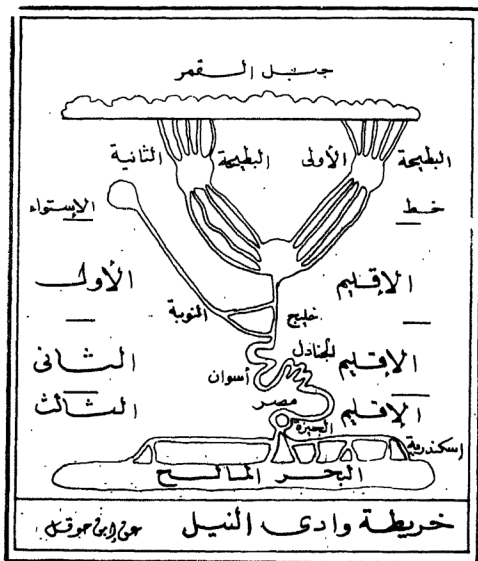 جبل القمر
البطيحة الأولى البطيحة الثانية
خط الإستواء
الإقليم الأول
النوبة خليج
الجنادل
الإقليم الثانى
أسوان
مصر
الإقليم الثالث
الجيزة
اسكندرية
البحر المالح
خريطة وادى النيل عن إبن حوقل